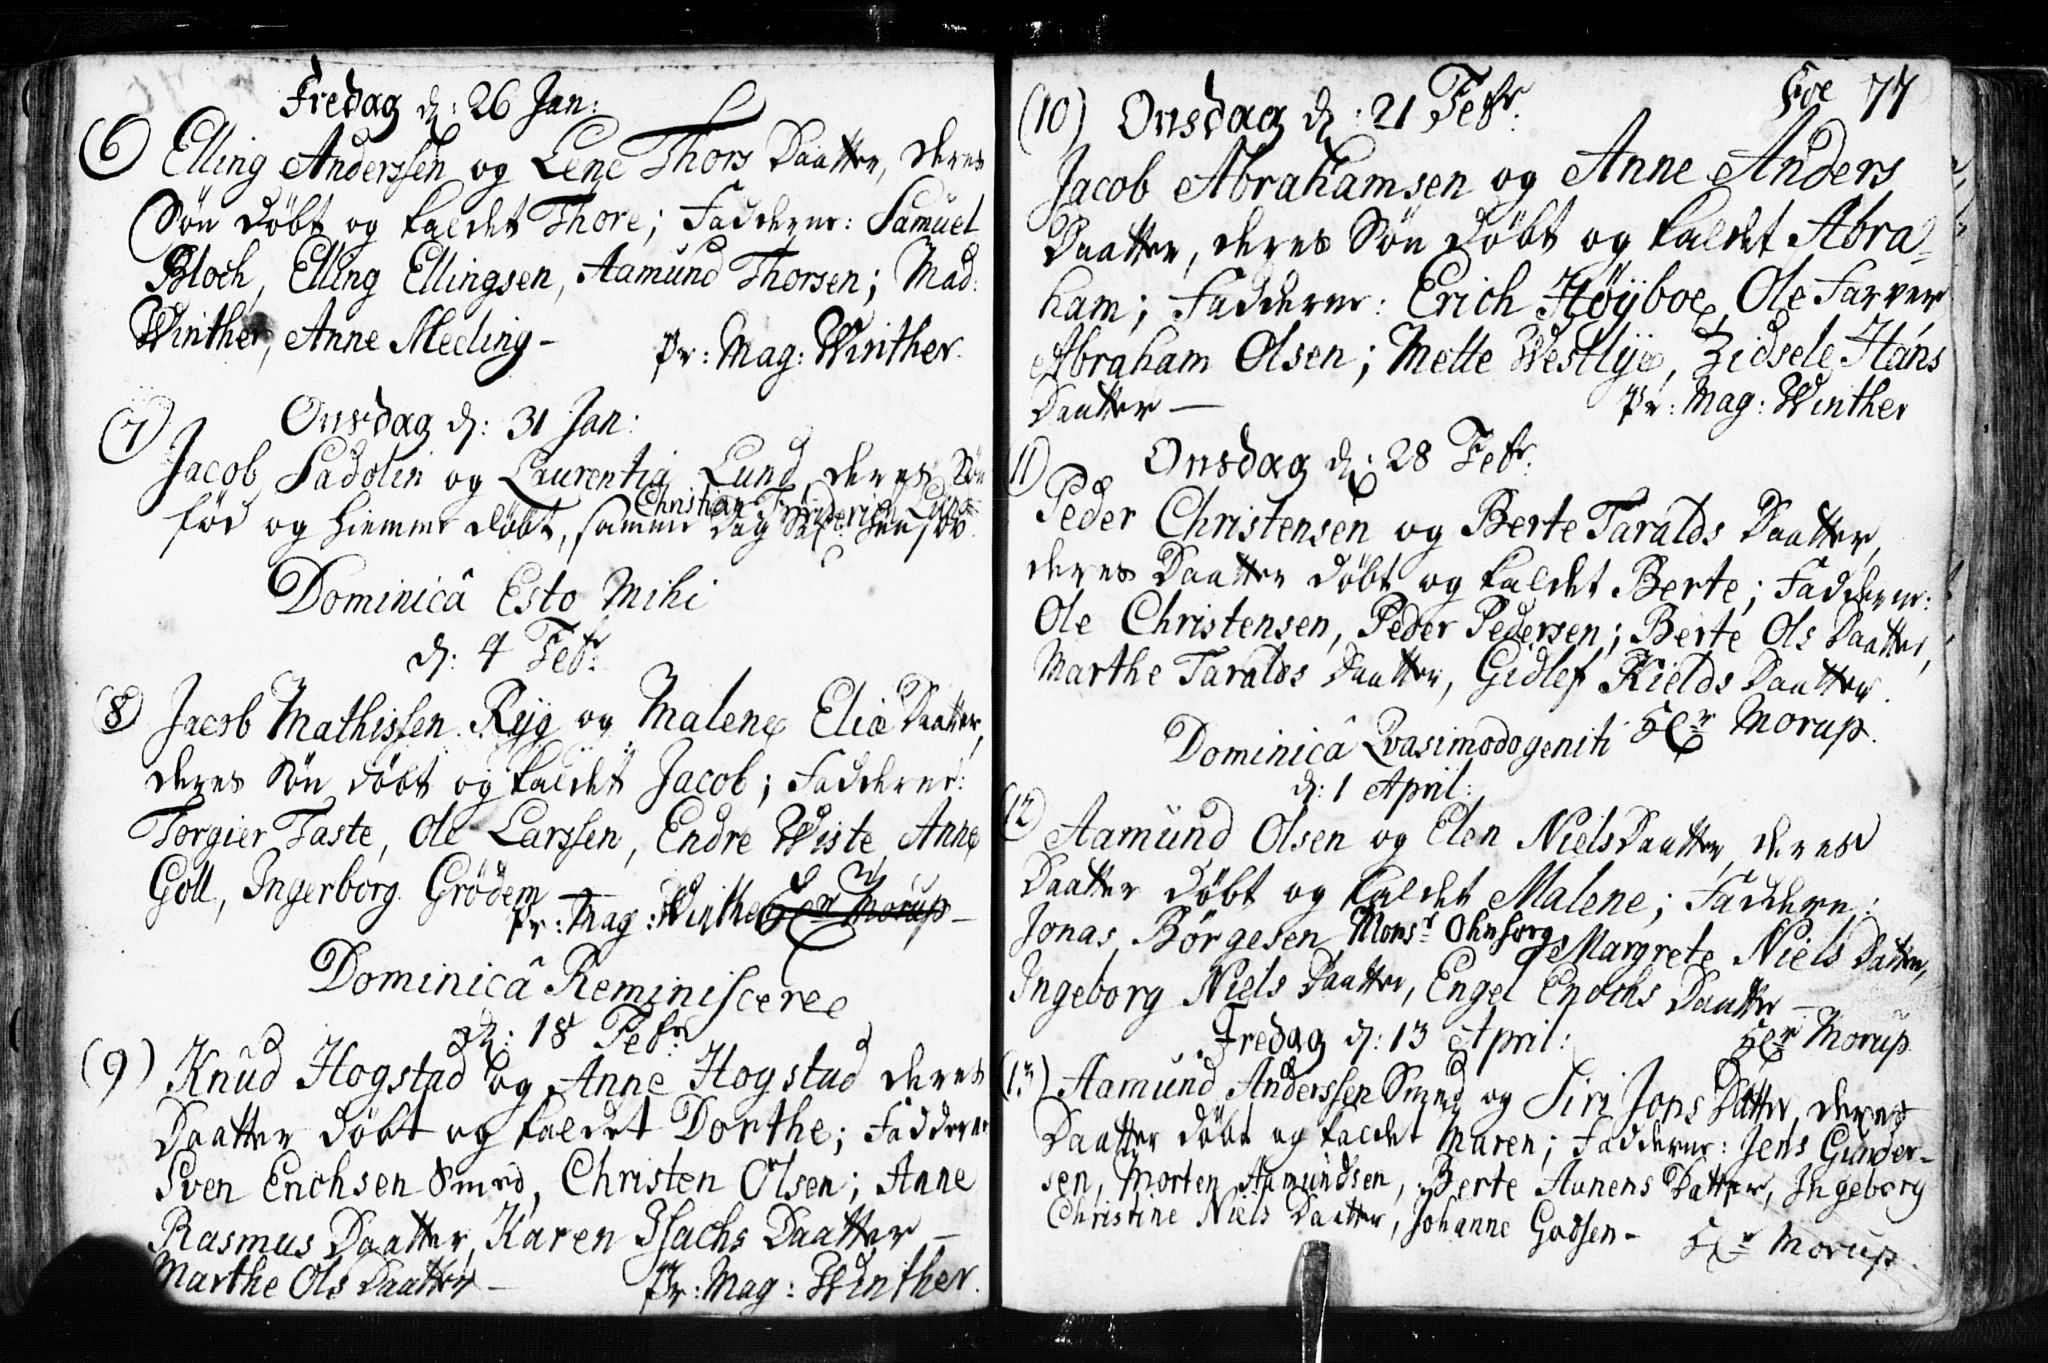 Fredag d: 26 Jan:
(6) Elling Anderssen og Lene Thors Daatter, deres
Søn døbt og kaldet Thore; Fadderne: Samuel
Bloch, Elling Ellingsen, Aamund Thorsen; Mad:
Winther, Anne Meeling –
Pr: Mag: Winther.
(7) Onsdag d: 31 Jan:
Jacob Sadolin og Laurentia Lund, deres Søn
Christian Friderich Lund
fød og hiemme døbt, samme Dag
Dominicâ Esto Mihi
d: 4 Febr:
(8) Jacob Mathissen Ryg og Malene Eliæ Daatter,
deres Søn døbt og kaldet Jacob; Fadderne:
Torgier Taste, Ole Larssen, Endre Wiste, Anne
Goll, Ingerborg Grödem –
Pr: Mag: Winther Hr Morup –
Dominicâ Reminiscere
d: 18 Febr:
(9) Knud Hogstad og Anne Hogstad deres
Daatter døbt og kaldet Dorthe; Fadderne
Sven Erichsen Smed, Christen Olsen; Anne
Rasmus Daatter, Karen Isachs Daatter –
Marthe Ols Daatter –
Pr: Mag: Winther.
77
(10) Onsdag d: 21 Febr:
Jacob Abrahamsen og Anne Anders
Daatter, deres Søn døbt og kaldet Abra-
ham; Fadderne: Erich Høyboe, Ole Farver
Abraham Olsen; Mette Westlye, Zidsele Hans
Daatter –
Pr: Mag: Winther
11) Onsdag d: 28 Febr:
Peder Christensen og Berte Taralds Daatter,
deres Daatter døbt og kaldet Berte; Fadderne:
Ole Christensen, Peder Pedersen; Berte Ols Daatter,
Marthe Taralds Daatter, Gidlef Kields Daatter.
Hr Morup.
Dominicâ Qvasimodogeniti
d: 1 April:
(12) Aamund Olsen og Elen Niels Daatter, deres
Daatter døbt og kaldet Malene; Fadderne:
Jonas Børgesen, Monsr Ohnsorg, Margrete Niels Datter,
Ingeborg Niels Daatter, Engel Enochs Daatter –
Hr Morup.
Fredag d: 13 April:
(13) Aamund Anderssen Smed og Siri Jons Datter, deres
Daatter døbt og kaldet Maren; Fadderne: Jens Gunder-
sen, Morten Aamundsen, Berte Aanens Datter, Ingeborg
Christine Niels Daatter, Johanne Godsen –
Hr Morup.